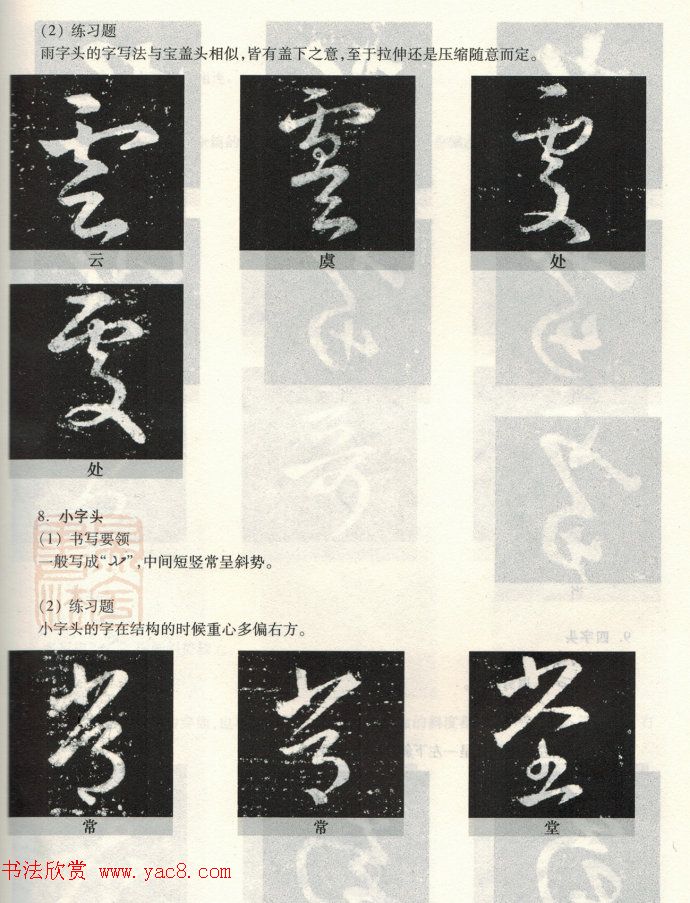 (2) 练习题
雨字头的字写法与宝盖头相似,皆有盖下之意,至于拉伸还是压缩随意而定。
云 虞 处
处
8. 小字头
(1) 书写要领
一般写成“”,中间短竖常呈斜势。
(2) 练习题
小字头的字在结构的时候重心多偏右方。
9. 四字头
常 常 堂
书法欣赏 www.yac8.com